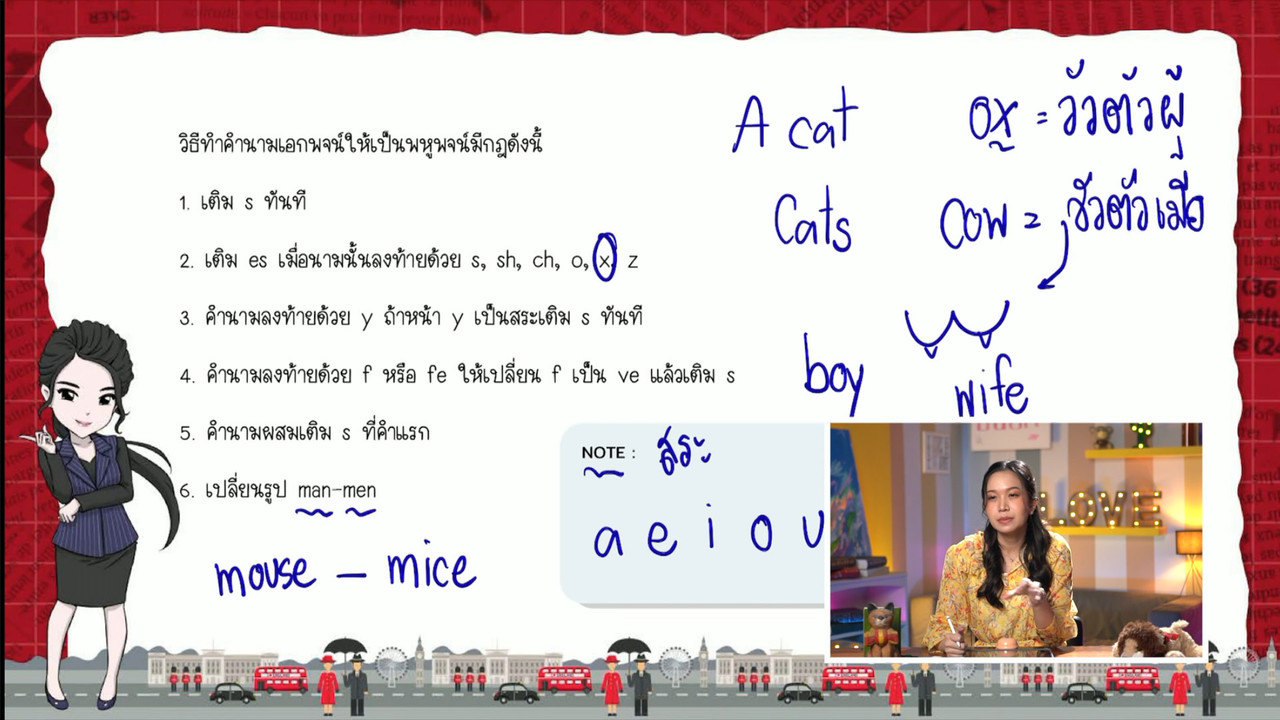 วิธีทำคำนามเอกพจน์ให้เป็นพหูพจน์มีกฎดังนี้
1. เติม s ทันที
2. เติม es เมื่อนามนั้นลงท้ายด้วย s, sh, ch, o, x, z
3. คำนามลงท้ายด้วย y ถ้าหน้า y เป็นสระเติม s ทันที
4. คำนามลงท้ายด้วย f หรือ fe ให้เปลี่ยน f เป็น ve แล้วเติม s
5. คำนามผสมเติม s ที่คำแรก
6. เปลี่ยนรูป man-men
mouse – mice
A cat
Cats
ox = วัวตัวผู้
cow = วัวตัวเมีย
boy
wife
NOTE : สระ
a e i o u
LOVE